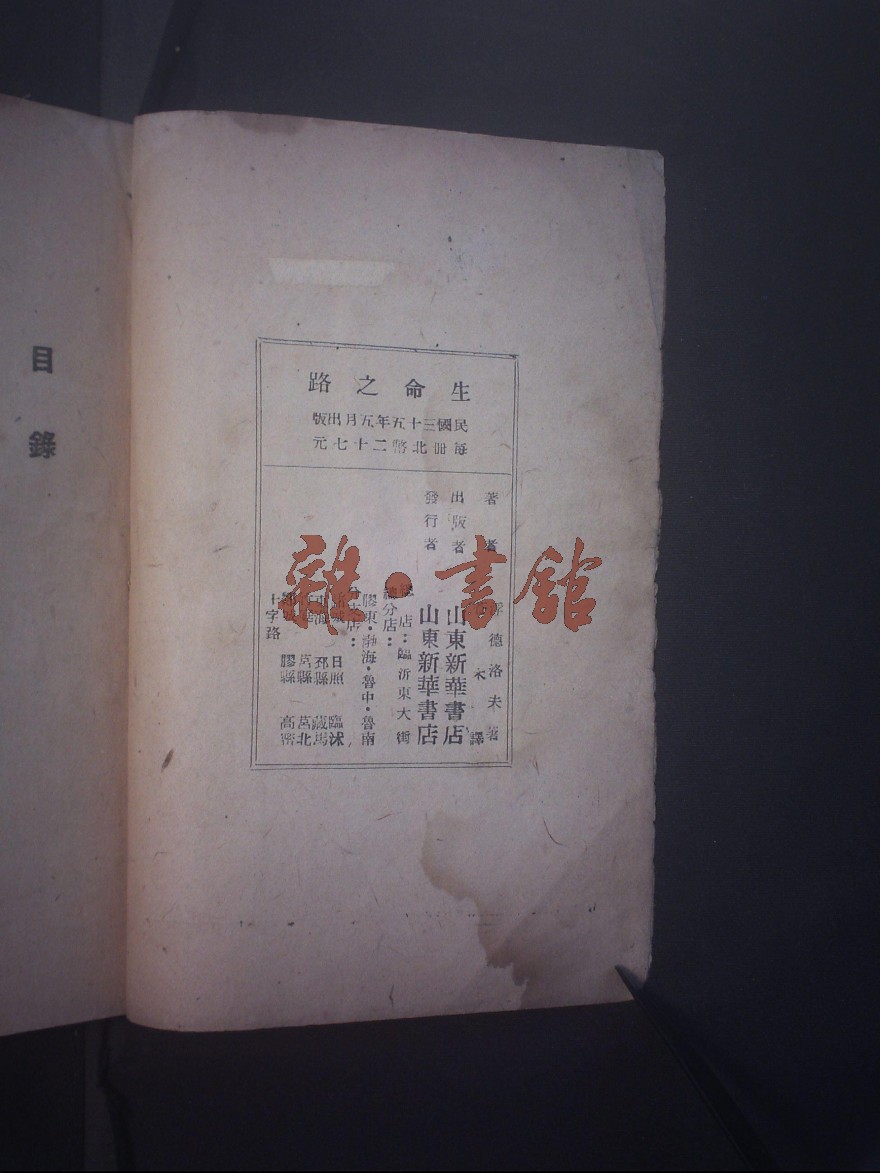 生命之路
民國三十五年五月出版
每冊北幣二十七元
著者
德洛夫著
譯
出版者 山東新華書店
發行者 山東新華書店
店：臨沂東大街
總分店：
膠東·渤海·魯中·魯南
分支店：
諸城 日照 臨沭
邳縣 藏馬
莒縣 莒北
膠縣 高密
十字路
目錄
雜·書館